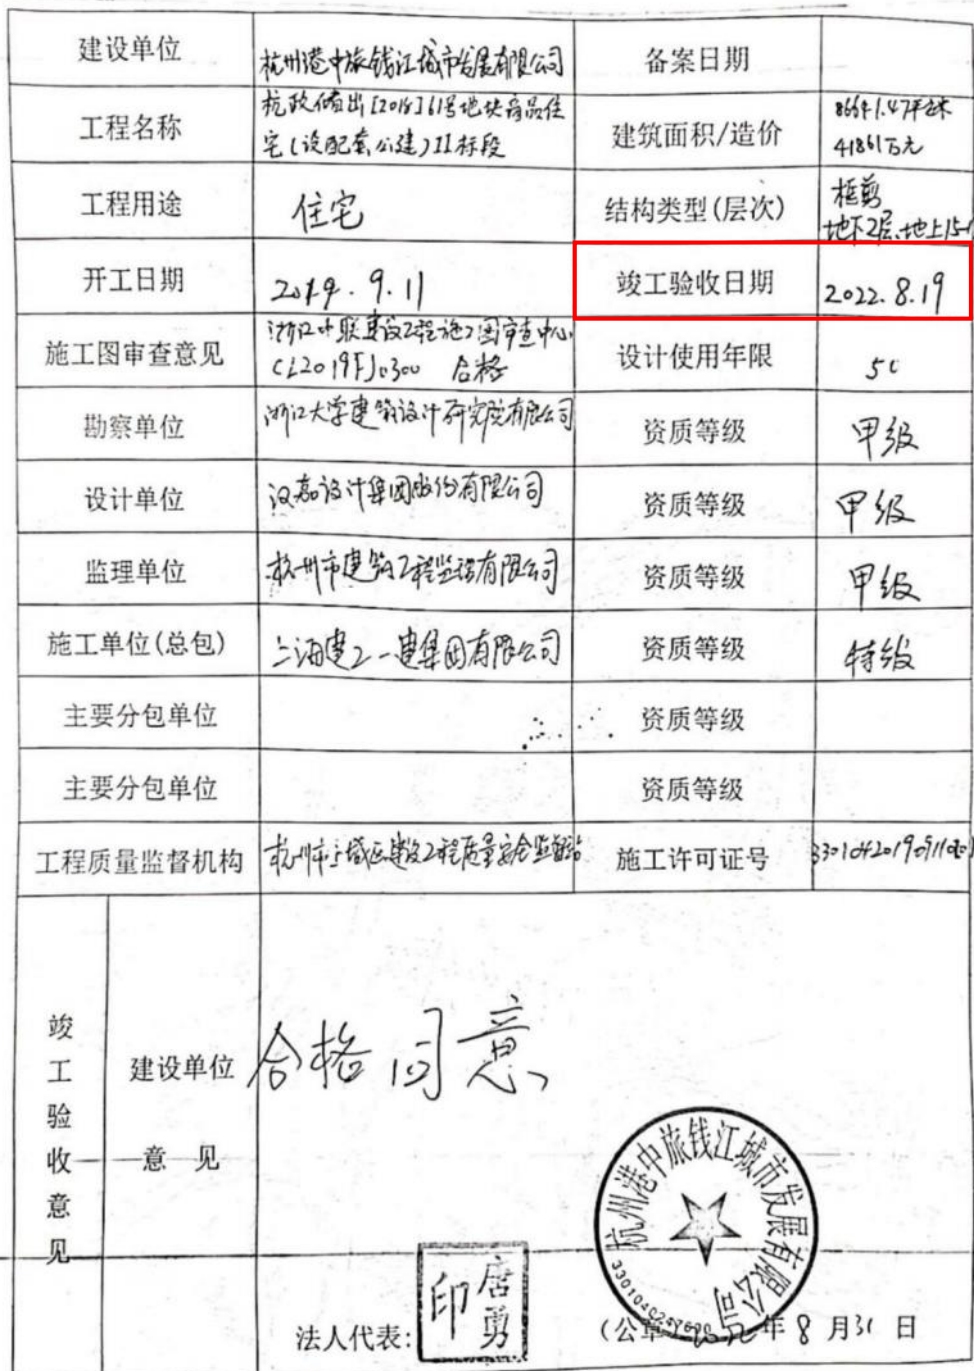 建设单位
杭州港中旅钱江城市发展有限公司
备案日期
工程名称
杭政储出[2018]61号地块商品住
宅(设配套公建)II标段
建筑面积/造价
86641.47平方米
41861万元
工程用途
住宅
结构类型(层次)
框剪
地下2层、地上15-1
开工日期
2019.9.11
竣工验收日期
2022.8.19
施工图审查意见
浙江中联建设工程施工图审查中心
CL2019FJ0300 合格
设计使用年限
50
勘察单位
浙江大学建筑设计研究院有限公司
资质等级
甲级
设计单位
汉嘉设计集团股份有限公司
资质等级
甲级
监理单位
杭州市建筑工程监理有限公司
资质等级
甲级
施工单位(总包)
上海建工一建集团有限公司
资质等级
特级
主要分包单位
资质等级
主要分包单位
资质等级
工程质量监督机构
杭州市上城区建设工程质量安全监督站
施工许可证号
竣工验收意见
建设单位
意 见
合格 同意
杭州港中旅钱江城市发展有限公司
法人代表:
唐勇印
(公章) 2022年8月31日